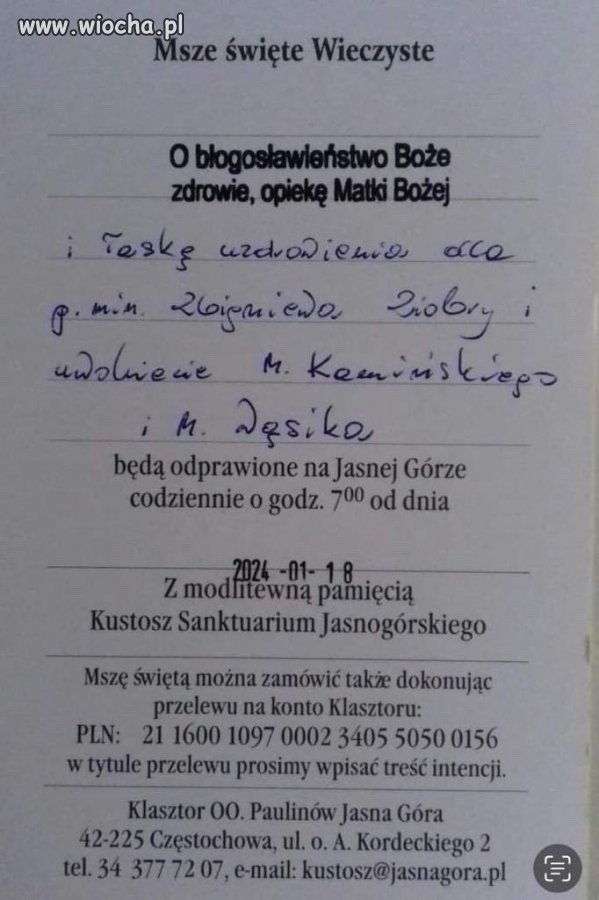 www.wiocha.pl
Msze święte Wieczyste
O błogosławieństwo Boże
zdrowie, opiekę Matki Bożej
i łaskę uzdrowienia dla
p. min. Zbigniewa Ziobry i
uwolnienie M. Kamińskiego
i M. Wąsika
będą odprawione na Jasnej Górze
codziennie o godz. 7⁰⁰ od dnia
2024 -01- 18
Z modlitewną pamięcią
Kustosz Sanktuarium Jasnogórskiego
Mszę świętą można zamówić także dokonując
przelewu na konto Klasztoru:
PLN: 21 1600 1097 0002 3405 5050 0156
w tytule przelewu prosimy wpisać treść intencji.
Klasztor OO. Paulinów Jasna Góra
42-225 Częstochowa, ul. o. A. Kordeckiego 2
tel. 34 377 72 07, e-mail: kustosz@jasnagora.pl